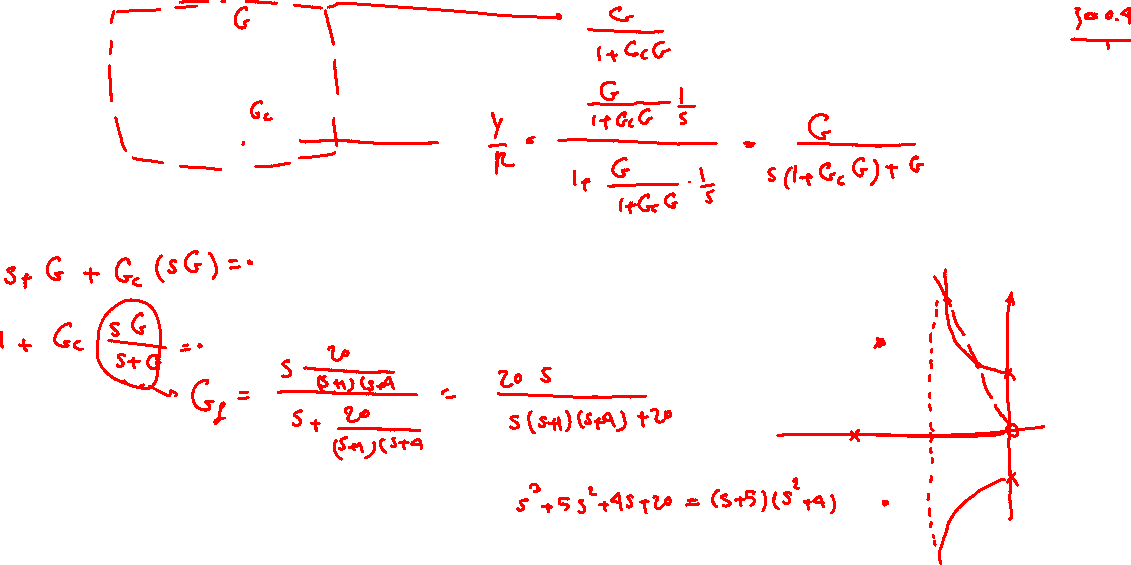 G
G / (1 + G_c G)
ζ = 0.4
G_c
Y/R = (G / (1 + G_c G) · 1/s) / (1 + G / (1 + G_c G) · 1/s) = G / (s(1 + G_c G) + G)
s + G + G_c (sG) = 0
1 + G_c (sG / (s + G)) = 0
G_f = (s 20 / ((s+1)(s+4)) / (s + 20 / ((s+1)(s+4)) = 20 s / (s(s+1)(s+4) + 20)
s³ + 5s² + 4s + 20 = (s+5)(s²+4)